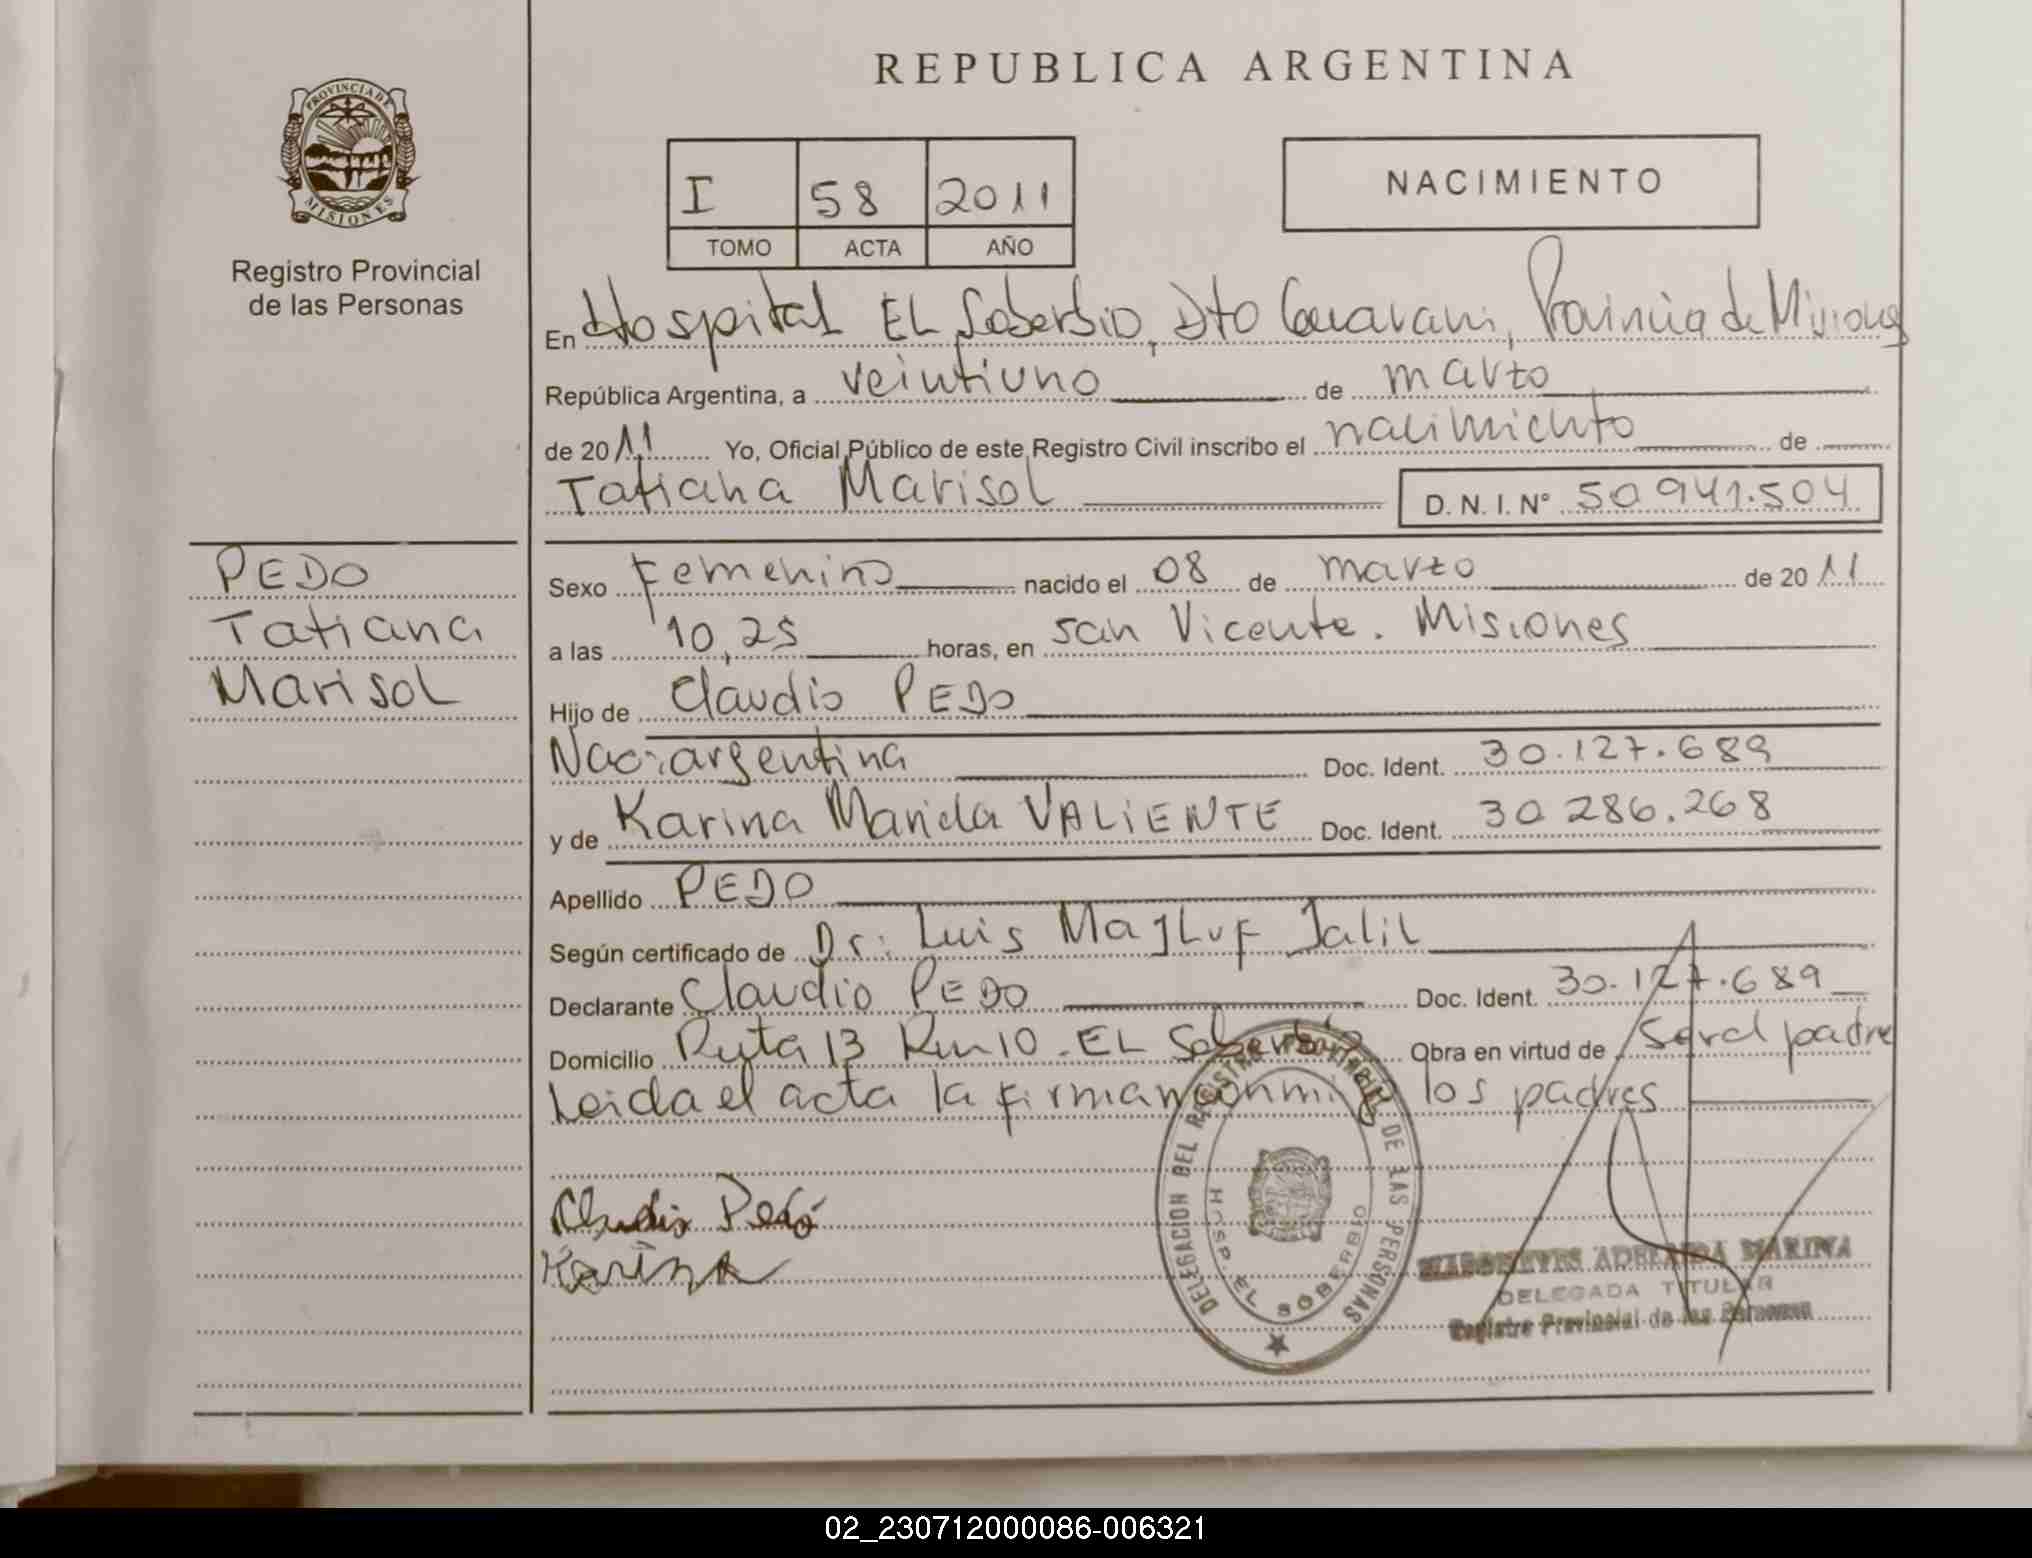 REPUBLICA ARGENTINA
PROVINCIA DE MISIONES
Registro Provincial
de las Personas
I 58 2011
TOMO ACTA AÑO
NACIMIENTO
En Hospital EL Soberbio, Dto Guarani, Provincia de Misiones
República Argentina, a veintiuno de marzo
de 2011 Yo, Oficial Público de este Registro Civil inscribo el nacimiento de
Tatiana Marisol D. N. I. N° 50 941.504
PEDO
Tatiana
Marisol
Sexo Femenino nacido el 08 de marzo de 2011
a las 10,25 horas, en San Vicente. Misiones
Hijo de Claudio PEDO
Nac: argentina Doc. Ident. 30.127.689
y de Karina Mariela VALIENTE Doc. Ident. 30 286.268
Apellido PEDO
Según certificado de Dr: Luis MaJLuf Jalil
Declarante Claudio PEDO Doc. Ident. 30.127.689
Domicilio Ruta 13 Km 10. EL Soberbio Obra en virtud de Ser el padre
Leida el acta la firman conmigo los padres
Claudio Pedó
Karina
DELEGACION DEL REGISTRO PROVINCIAL DE LAS PERSONAS
HOSP. EL SOBERBIO
ADELAIDA MARINA
DELEGADA TITULAR
Registro Provincial de las Personas
02_230712000086-006321